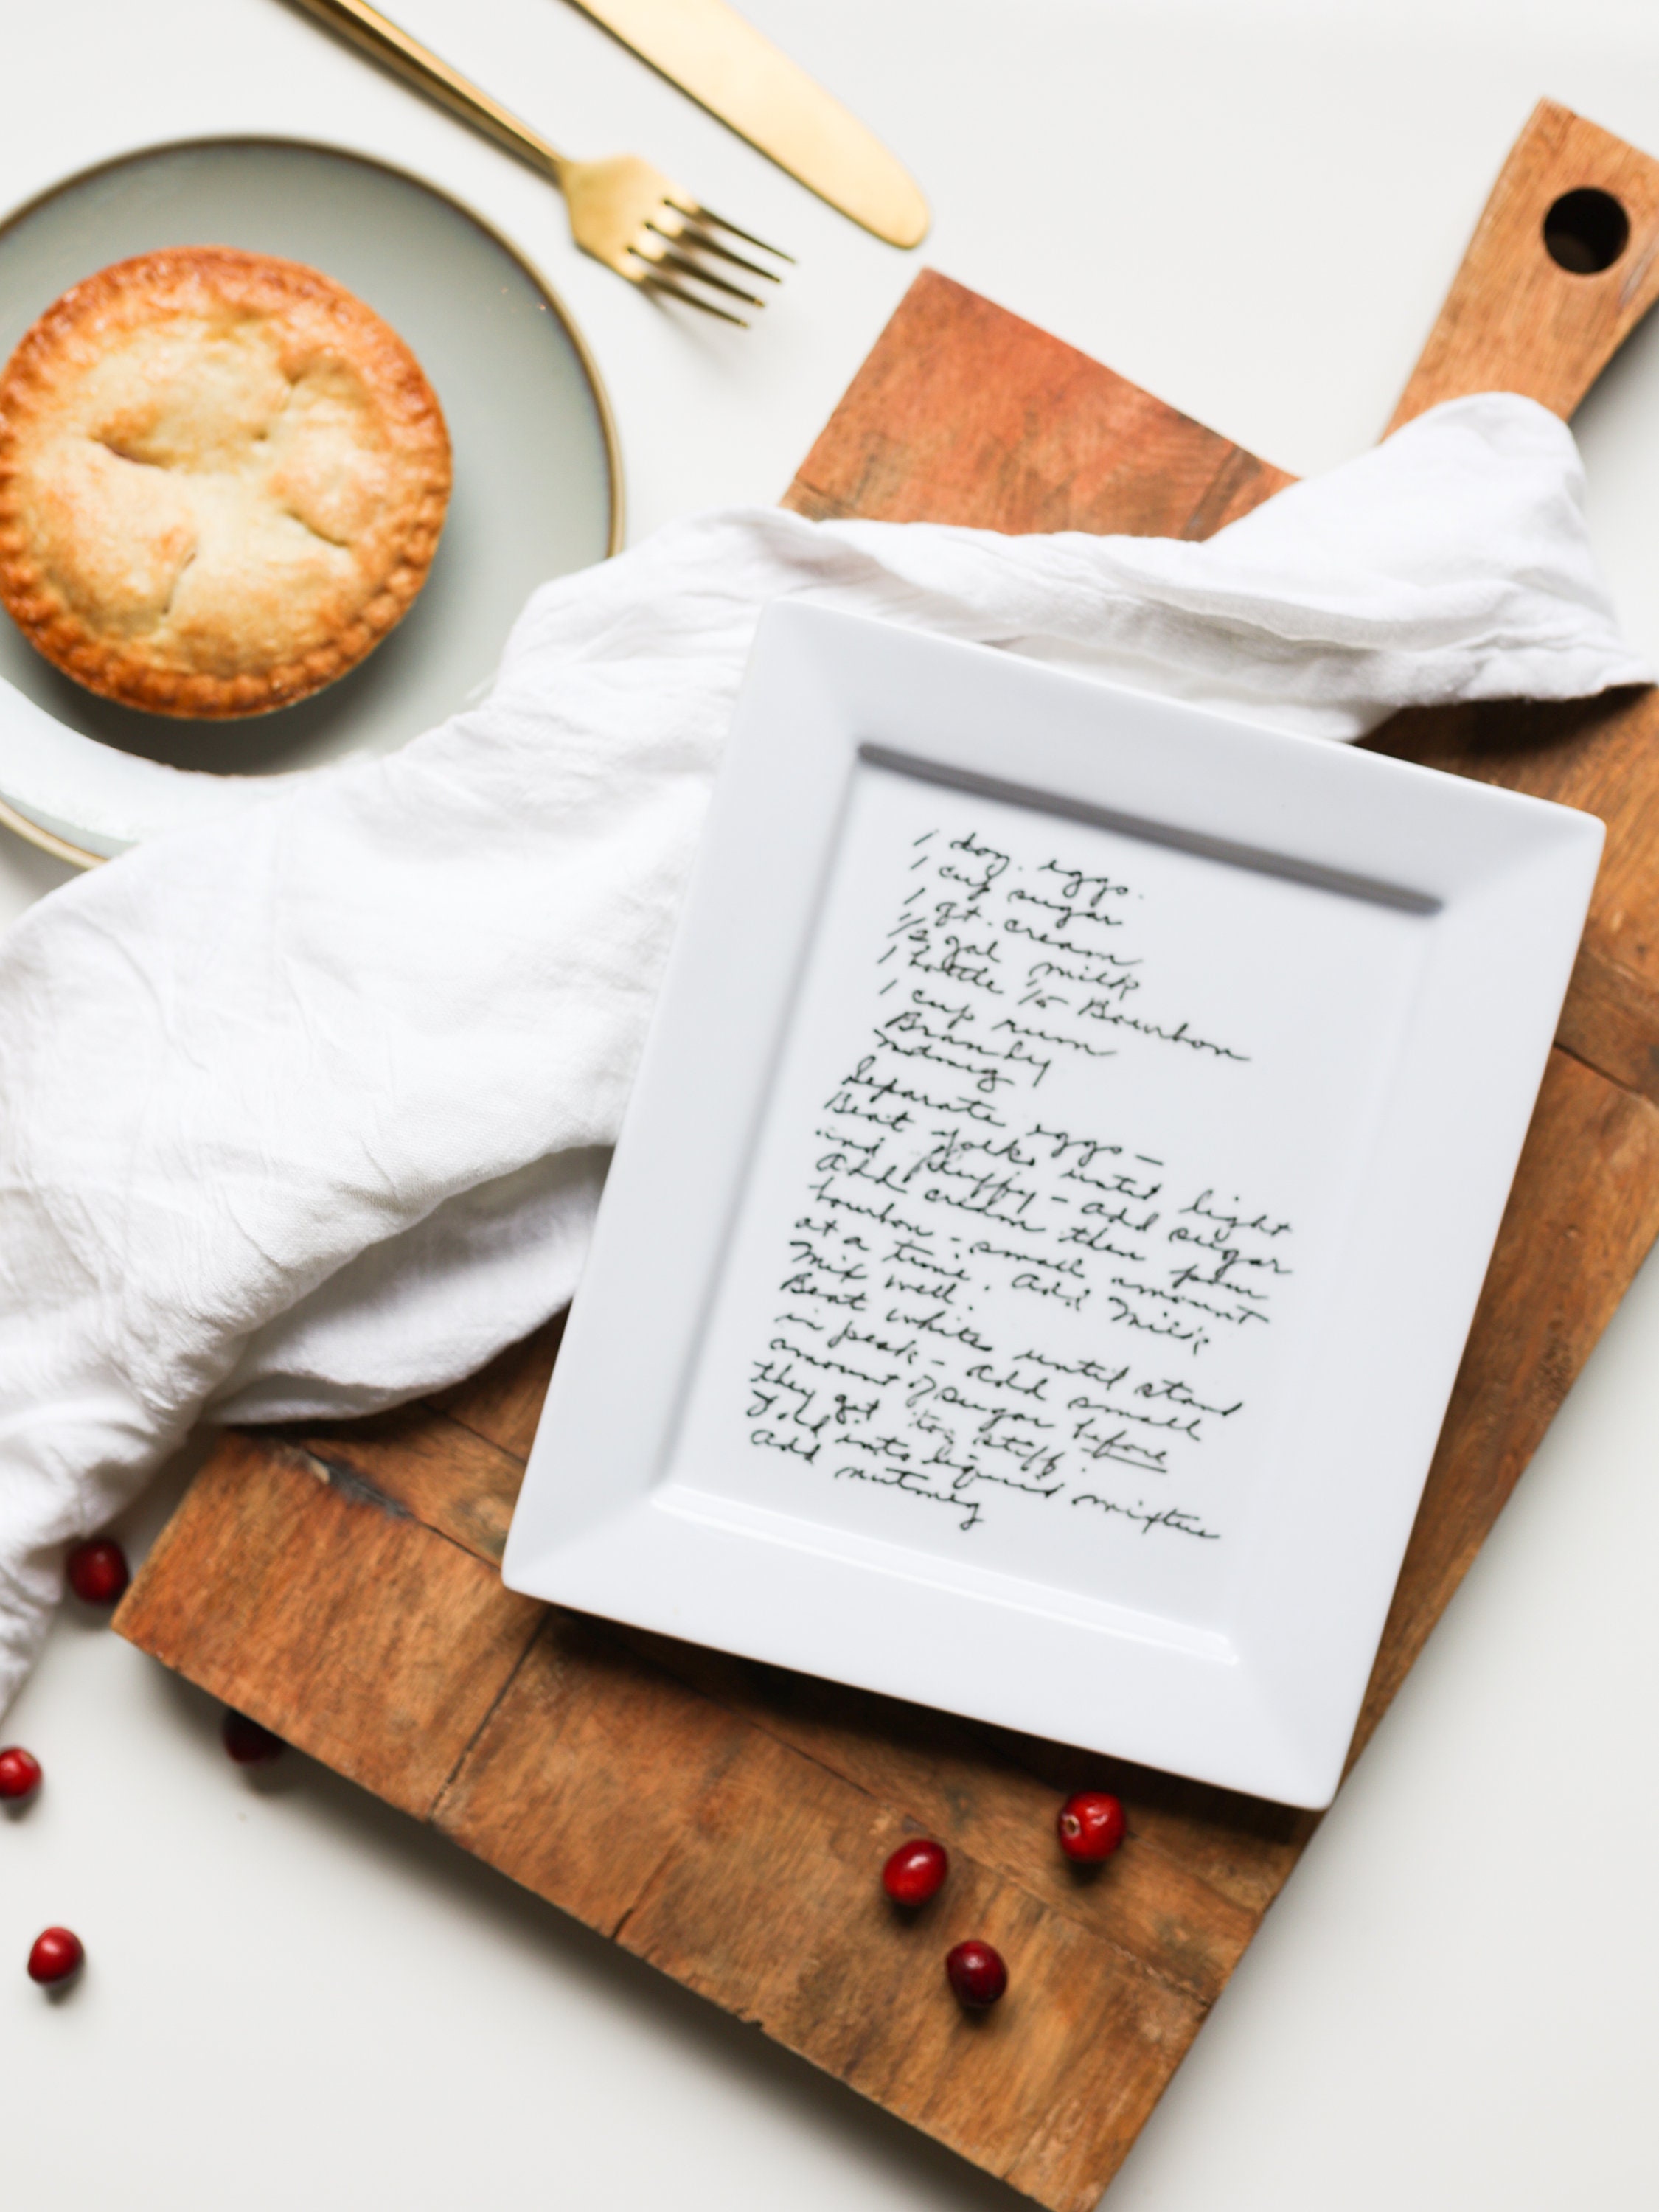 1 doz. eggs.
1 cup sugar
1 qt. cream
1/2 gal milk
1 bottle 1/5 Bourbon
1 cup rum
Brandy
nutmeg
Separate eggs –
Beat yolks until light
and fluffy – add sugar
Add cream then pour
bourbon – small amount
at a time. Add milk
Mix well.
Beat whites until stand
in peak – add small
amount of sugar before
they get too stiff.
Fold into liquid mixture
Add nutmeg